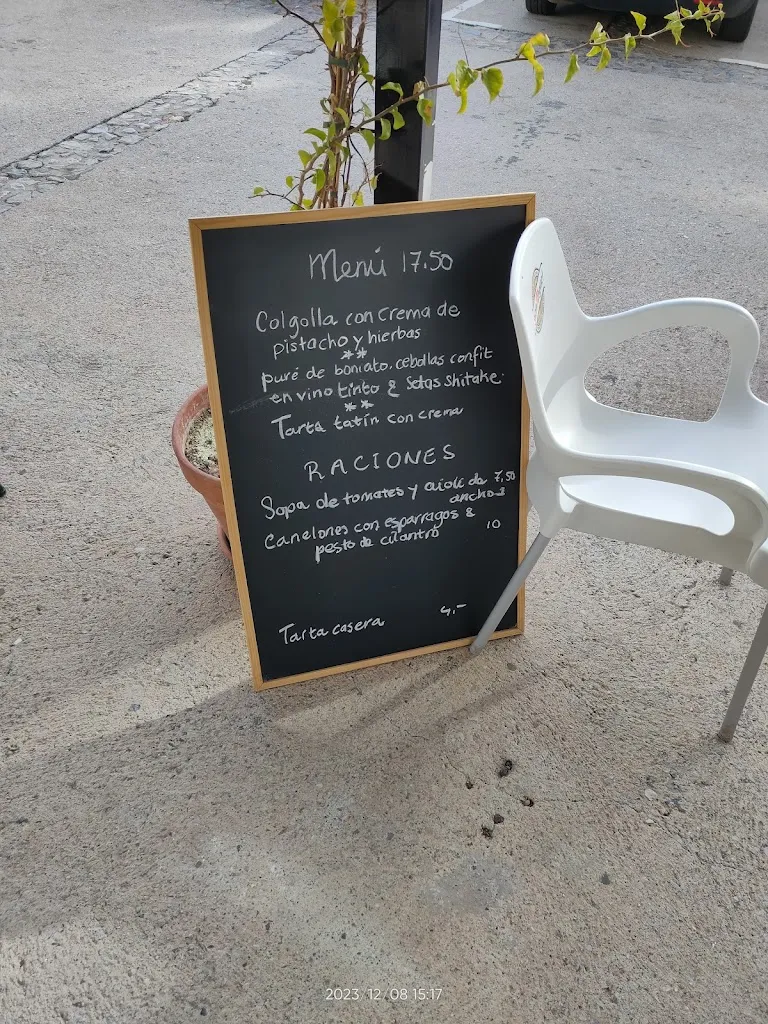 Menú 17.50
Colgolla con crema de
pistacho y hierbas
**
puré de boniato, cebollas confit
en vino tinto & Setas Shitake.
**
Tarta tatín con crema
RACIONES
Sopa de tomates y aioli de 7,50
anchoa
Canelones con esparragos &
pesto de cilantro 10
Tarta casera 4,-
2023/12/08 15:17